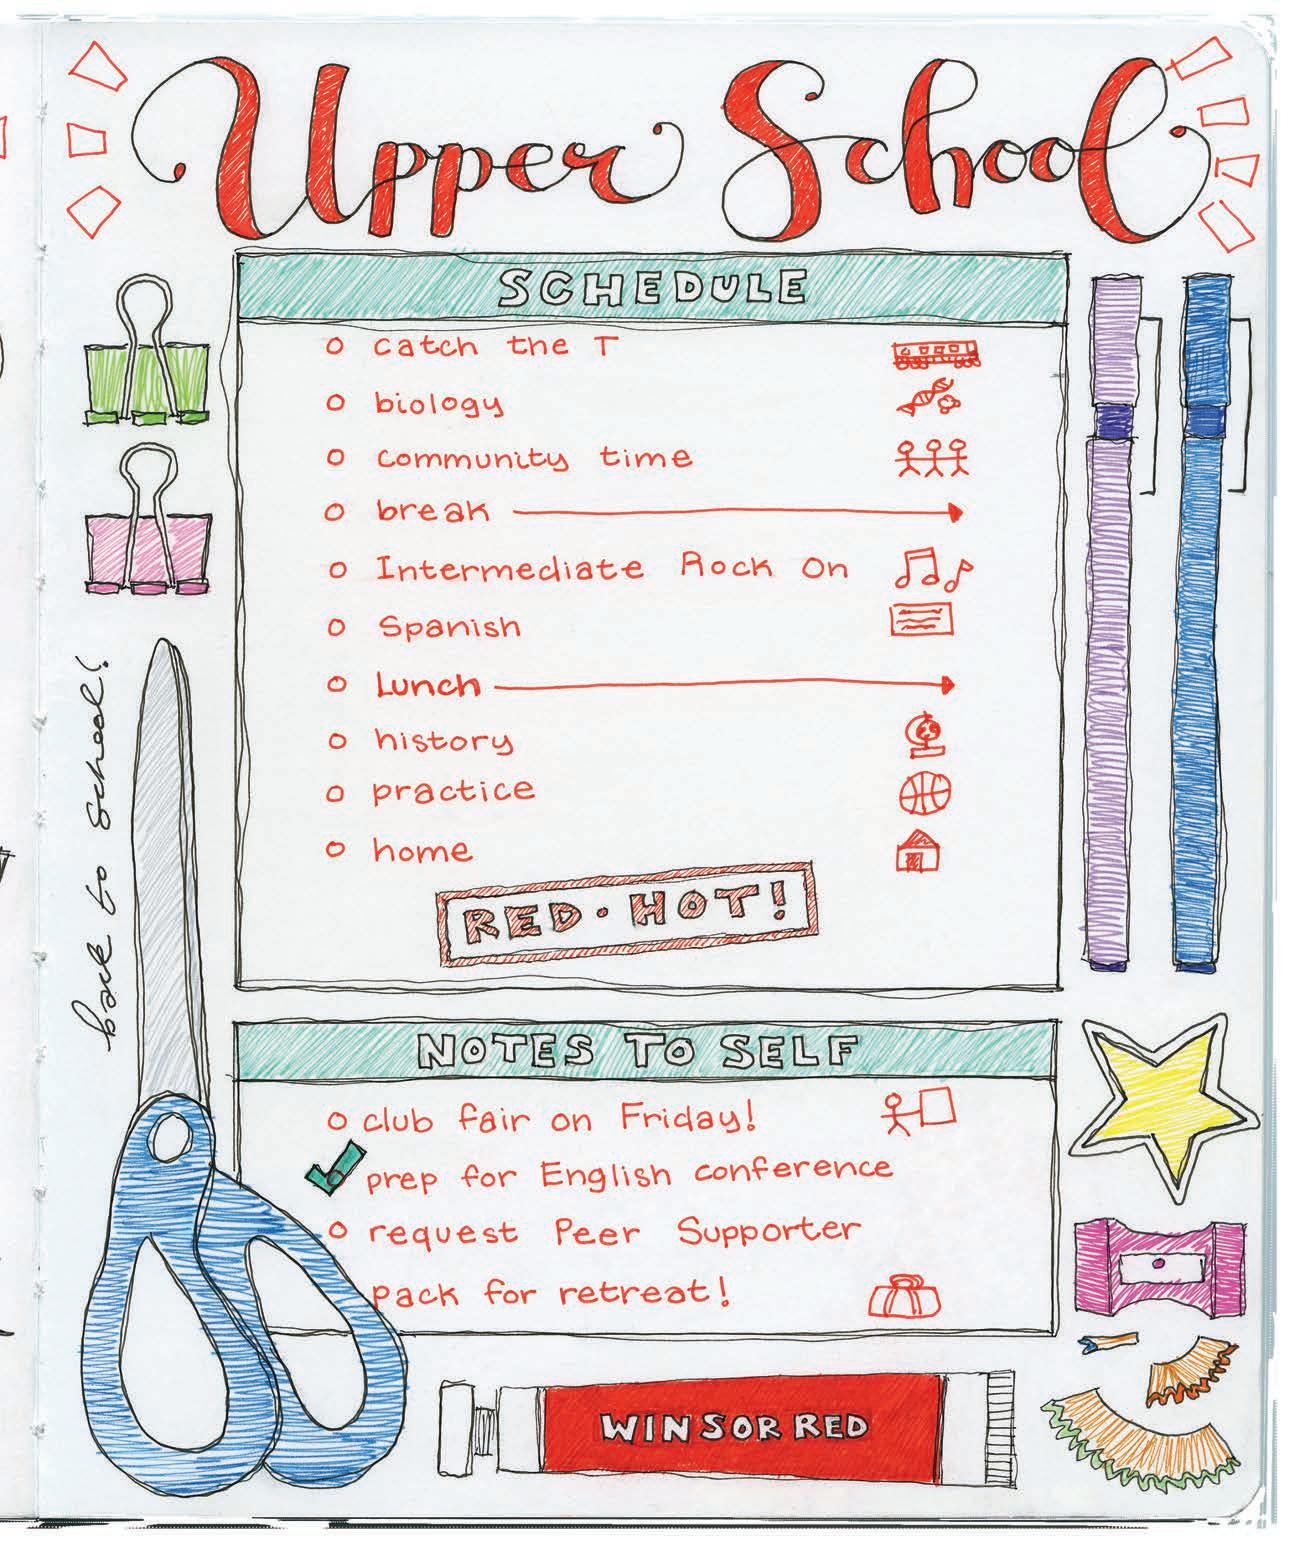 Upper School
SCHEDULE
catch the T
biology
community time
break
Intermediate Rock On
Spanish
Lunch
history
practice
home
RED·HOT!
back to school!
NOTES TO SELF
club fair on Friday!
prep for English conference
request Peer Supporter
pack for retreat!
WINSOR RED